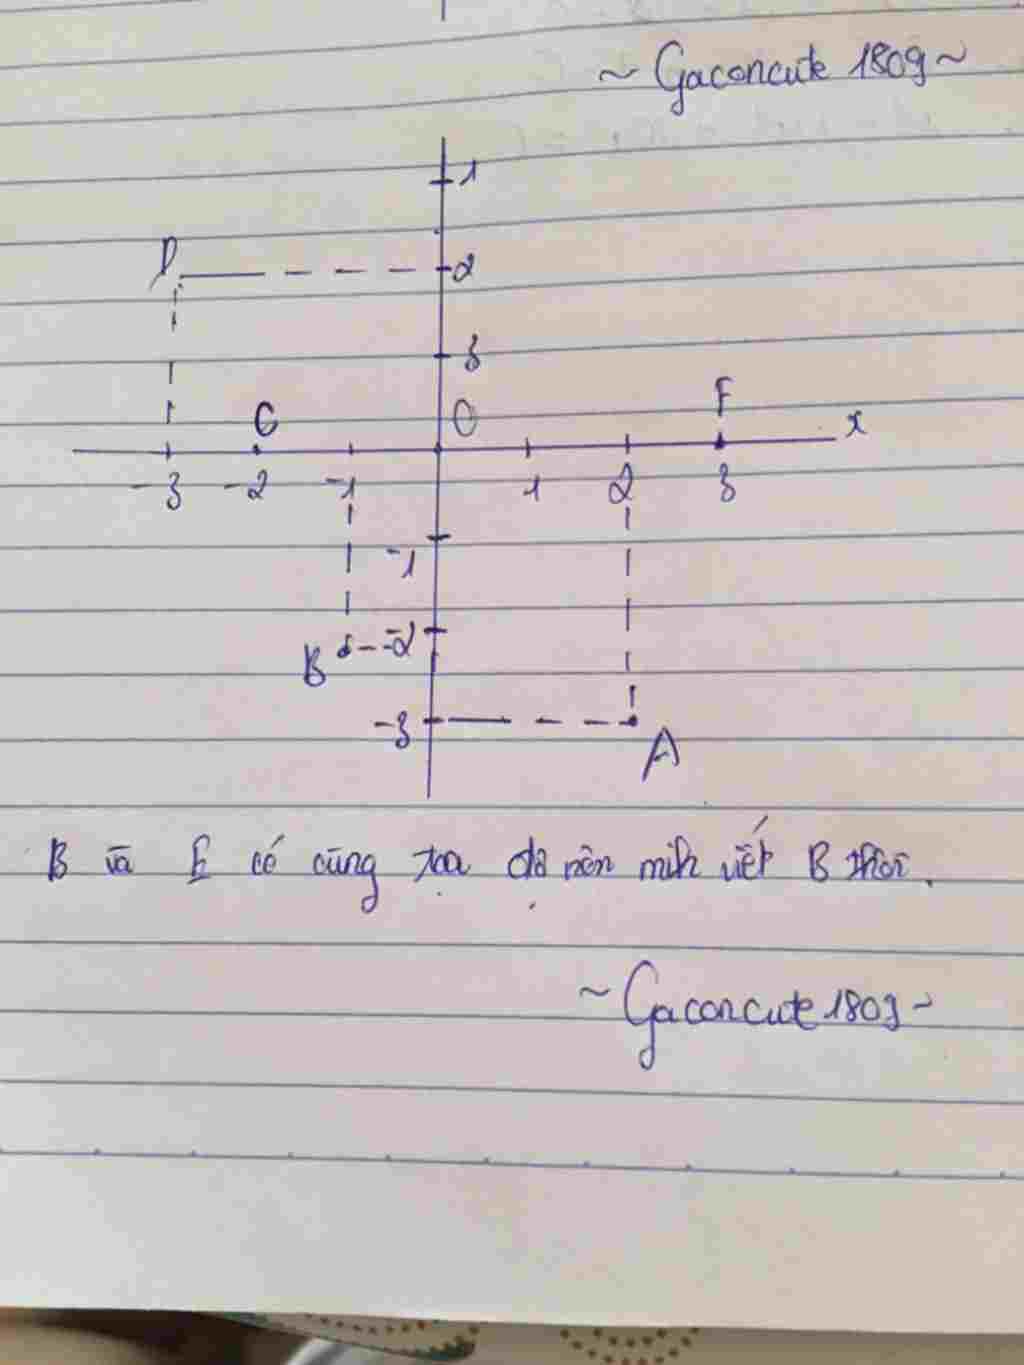 ~ Gaconcute 1809 ~
1
D
2
3
C
O
F
x
-3 -2 -1 1 2 3
-1
B -2
-3
A
B và E có cùng tọa độ nên mih viết B thôi.
~ Gaconcute 1809 ~